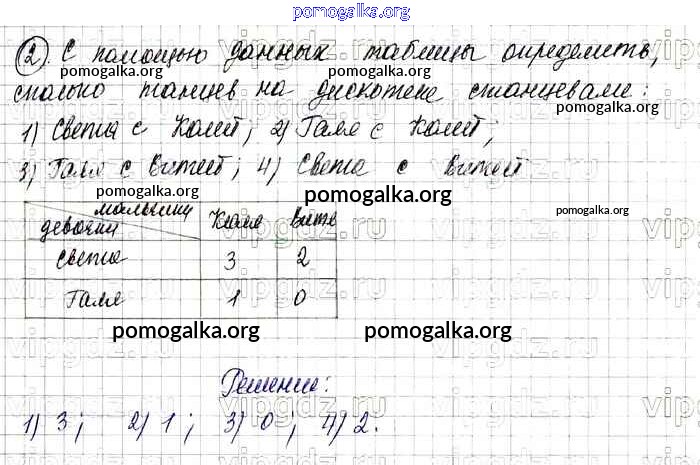 pomogalka.org
2. С помощью данных таблицы определить,
сколько танцев на дискотеке станцевали:
1) Света с Колей; 2) Галя с Колей;
3) Галя с Витей; 4) Света с Витей
мальчики
девочки
Коля
Витя
Света 3 2
Галя 1 0
Решение:
1) 3; 2) 1; 3) 0; 4) 2.
pomogalka.org
pomogalka.org
pomogalka.org
pomogalka.org
pomogalka.org
pomogalka.org
pomogalka.org
pomogalka.org
pomogalka.org
vipgdz.ru